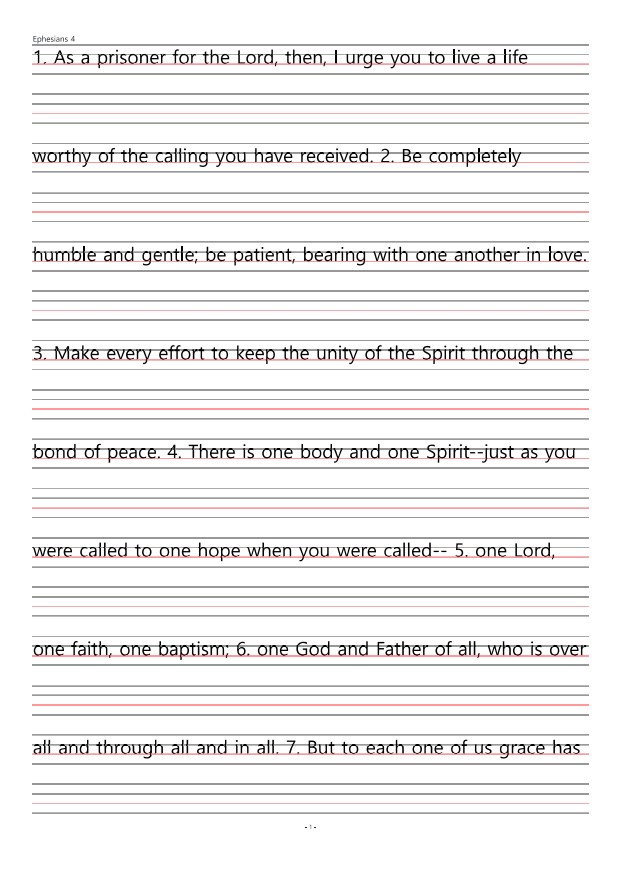 Ephesians 4
1. As a prisoner for the Lord, then, I urge you to live a life
worthy of the calling you have received. 2. Be completely
humble and gentle; be patient, bearing with one another in love.
3. Make every effort to keep the unity of the Spirit through the
bond of peace. 4. There is one body and one Spirit--just as you
were called to one hope when you were called-- 5. one Lord,
one faith, one baptism; 6. one God and Father of all, who is over
all and through all and in all. 7. But to each one of us grace has
- 1 -